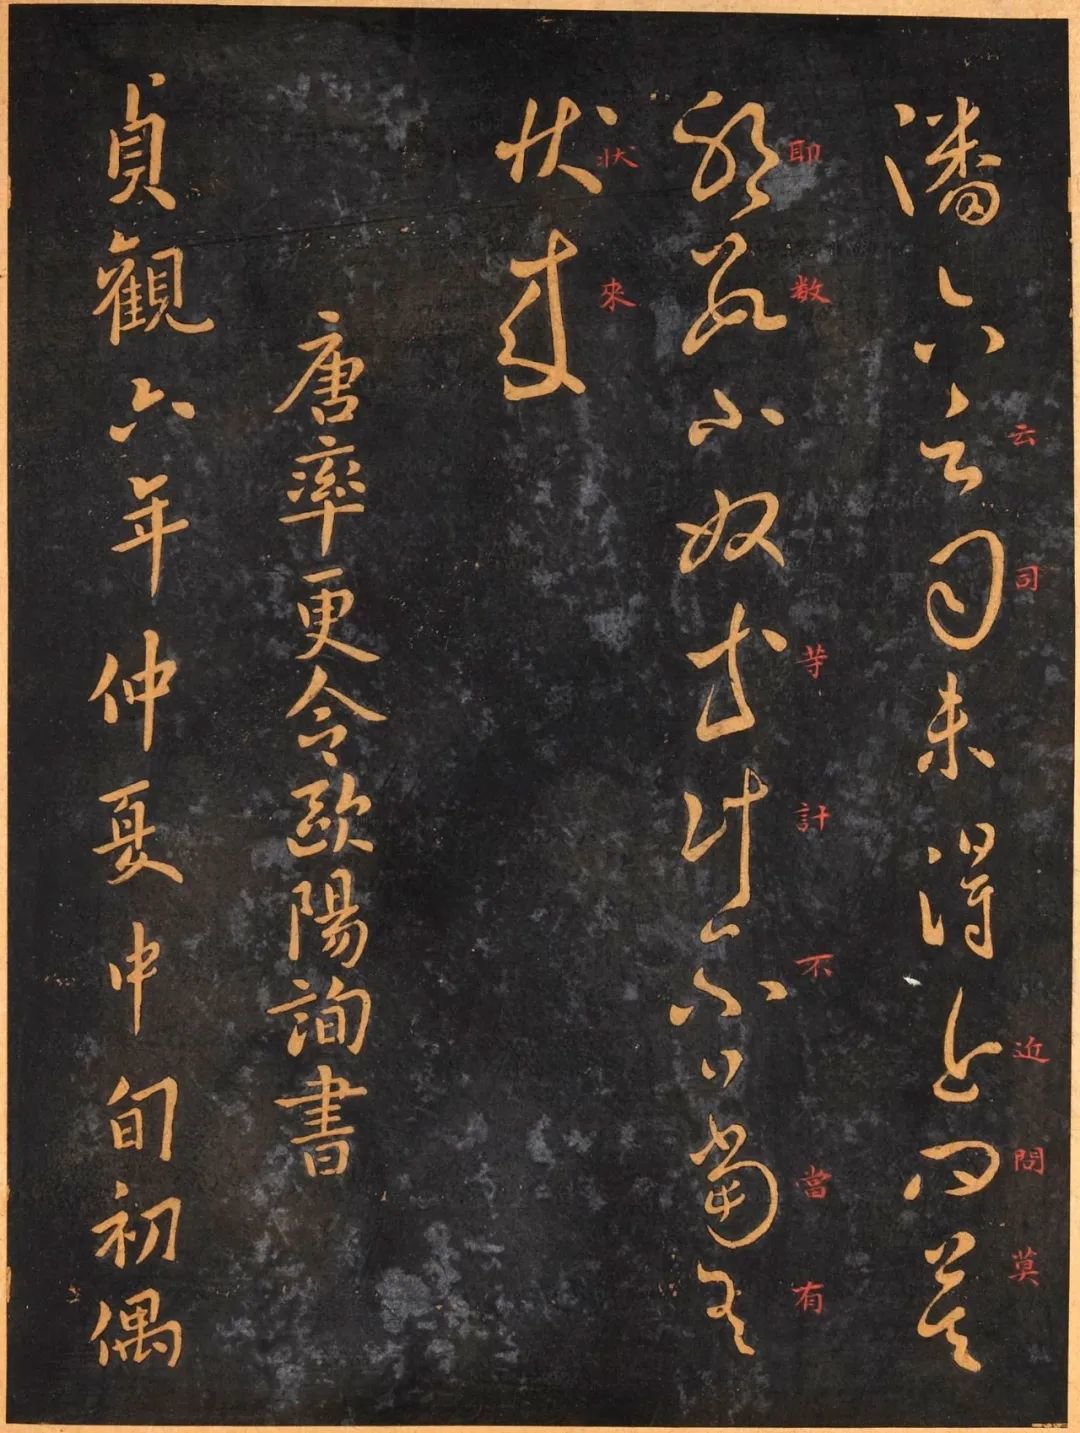 潘六云司未得近問莫
云司近問莫
耶數小奴等計不日當有
耶数等計不當有
狀來
狀來
唐率更令歐陽詢書
貞觀六年仲夏中旬初偶